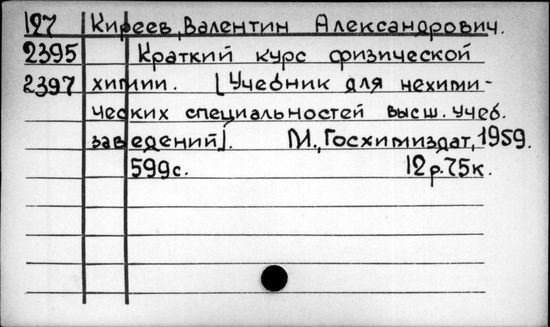 127 Киреев, Валентин Александрович.
2395 Краткий курс физической
2397 химии. [Учебник для нехими-
ческих специальностей высш. учеб.
заведений]. М., Госхимиздат, 1959.
599с. 12р.75к.